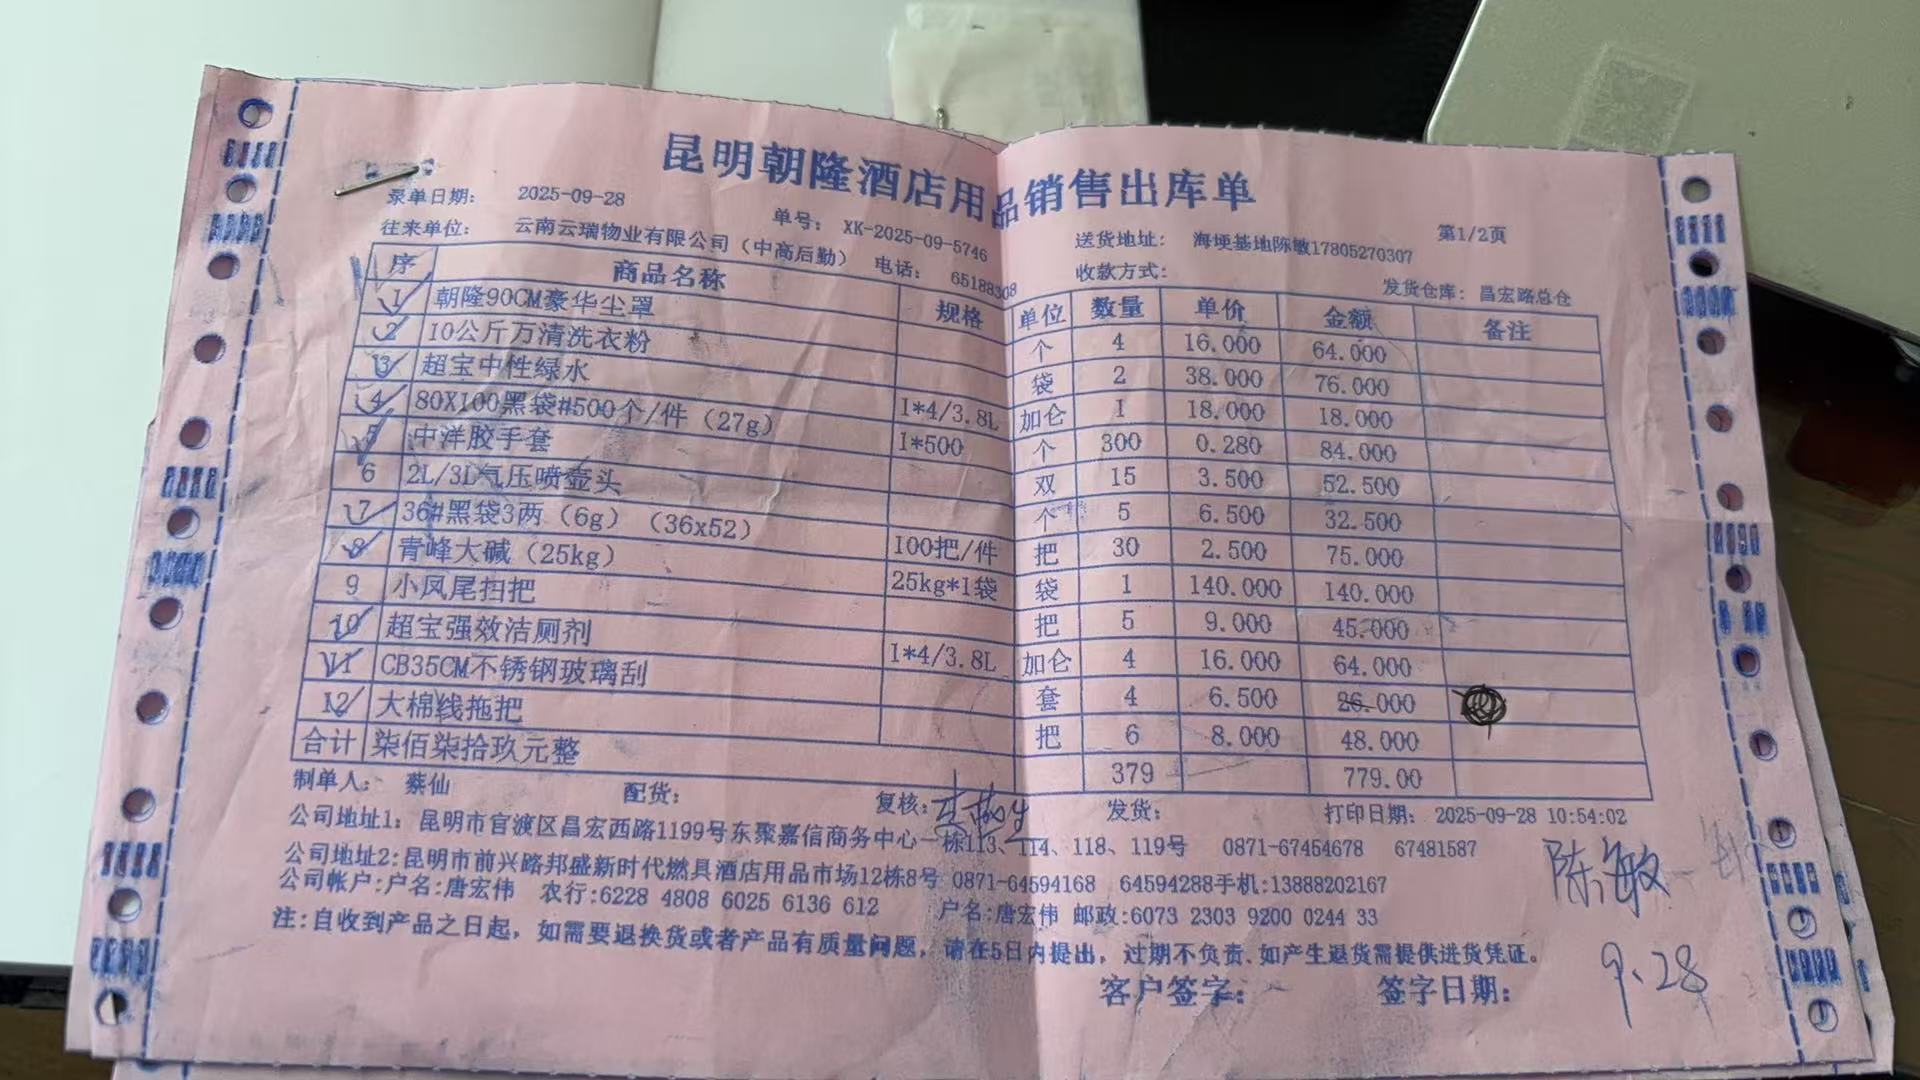 昆明朝隆酒店用品销售出库单
录单日期: 2025-09-28 单号: XK-2025-09-5746 第1/2页
往来单位: 云南云瑞物业有限公司（中高后勤） 电话: 65188308 送货地址: 海埂基地陈敏17805270307
收款方式: 发货仓库: 昌宏路总仓
序 商品名称 规格 单位 数量 单价 金额 备注
1 朝隆90CM豪华尘罩 个 4 16.000 64.000
2 10公斤万清洗衣粉 袋 2 38.000 76.000
3 超宝中性绿水 1*4/3.8L 加仑 1 18.000 18.000
4 80X100黑袋#500个/件（27g） 1*500 个 300 0.280 84.000
5 中洋胶手套 双 15 3.500 52.500
6 2L/3L气压喷壶头 个 5 6.500 32.500
7 36#黑袋3两（6g）（36x52） 100把/件 把 30 2.500 75.000
8 青峰大碱（25kg） 25kg*1袋 袋 1 140.000 140.000
9 小凤尾扫把 把 5 9.000 45.000
10 超宝强效洁厕剂 1*4/3.8L 加仑 4 16.000 64.000
11 CB35CM不锈钢玻璃刮 套 4 6.500 26.000
12 大棉线拖把 把 6 8.000 48.000
合计 柒佰柒拾玖元整 379 779.00
制单人: 蔡仙 配货: 复核: 发货: 打印日期: 2025-09-28 10:54:02
公司地址1: 昆明市官渡区昌宏西路1199号东聚嘉信商务中心一栋113、114、118、119号 0871-67454678 67481587
公司地址2:昆明市前兴路邦盛新时代燃具酒店用品市场12栋8号 0871-64594168 64594288手机:13888202167
公司帐户:户名:唐宏伟 农行:6228 4808 6025 6136 612 户名:唐宏伟 邮政:6073 2303 9200 0244 33
注:自收到产品之日起，如需要退换货或者产品有质量问题，请在5日内提出，过期不负责.如产生退货需提供进货凭证。
客户签字: 签字日期:
陈敏
9.28